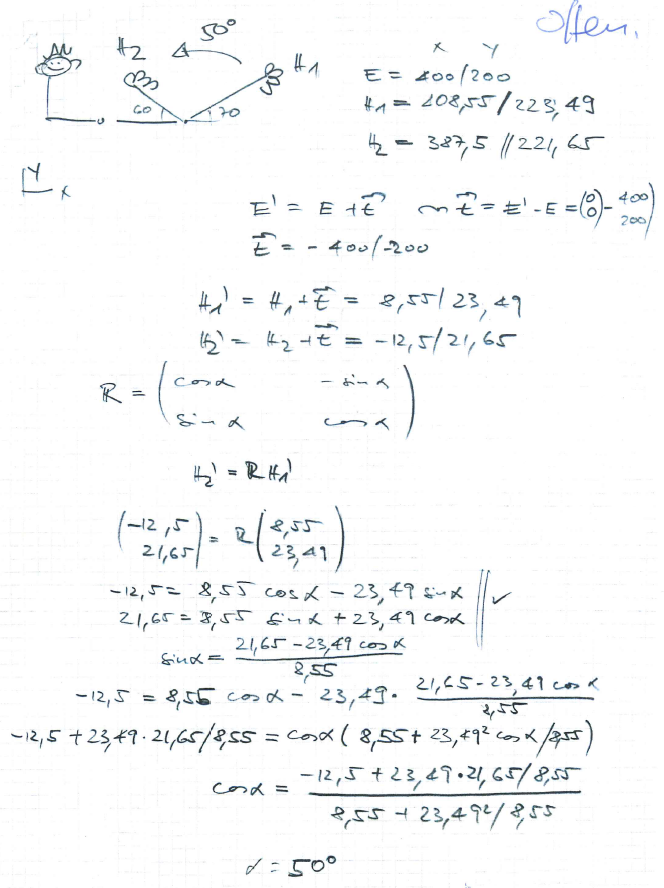 Offen.
50°
H2
H1
60
70
x y
E = 400/200
H1 = 408,55/223,49
H2 = 387,5 // 221,65
Y
x
E' = E + t t = E' - E = (0 0) - 400 200)
t = - 400/-200
H1' = H1 + t = 8,55/23,49
H2' = H2 + t = -12,5/21,65
R = (cos α - sin α
sin α cos α)
H2' = R H1'
(-12,5 21,65) = R (8,55 23,49)
-12,5 = 8,55 cos α - 23,49 sin α ✓
21,65 = 8,55 sin α + 23,49 cos α
sin α = 21,65 - 23,49 cos α / 8,55
-12,5 = 8,55 cos α - 23,49 · 21,65 - 23,49 cos α / 8,55
-12,5 + 23,49 · 21,65/8,55 = cos α ( 8,55 + 23,49² cos α/8,55)
cos α = -12,5 + 23,49 · 21,65/8,55 / 8,55 + 23,49²/8,55
α = 50°